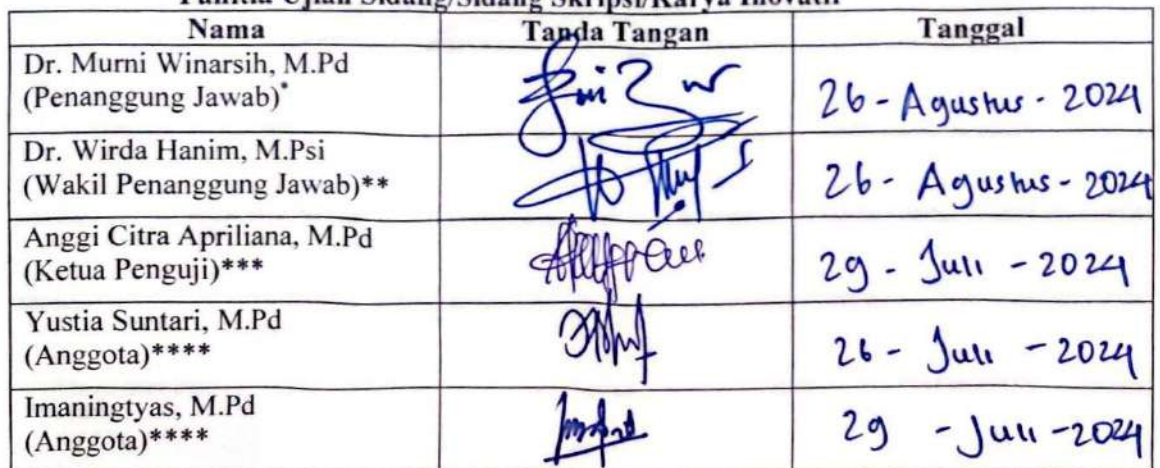 Panitia Ujian Sidang/Sidang Skripsi/Karya Inovatif
Nama Tanda Tangan Tanggal
Dr. Murni Winarsih, M.Pd
(Penanggung Jawab)*
26 - Agustus - 2024
Dr. Wirda Hanim, M.Psi
(Wakil Penanggung Jawab)**
26 - Agustus - 2024
Anggi Citra Apriliana, M.Pd
(Ketua Penguji)***
29 - Juli - 2024
Yustia Suntari, M.Pd
(Anggota)****
26 - Juli - 2024
Imaningtyas, M.Pd
(Anggota)****
29 - Juli - 2024